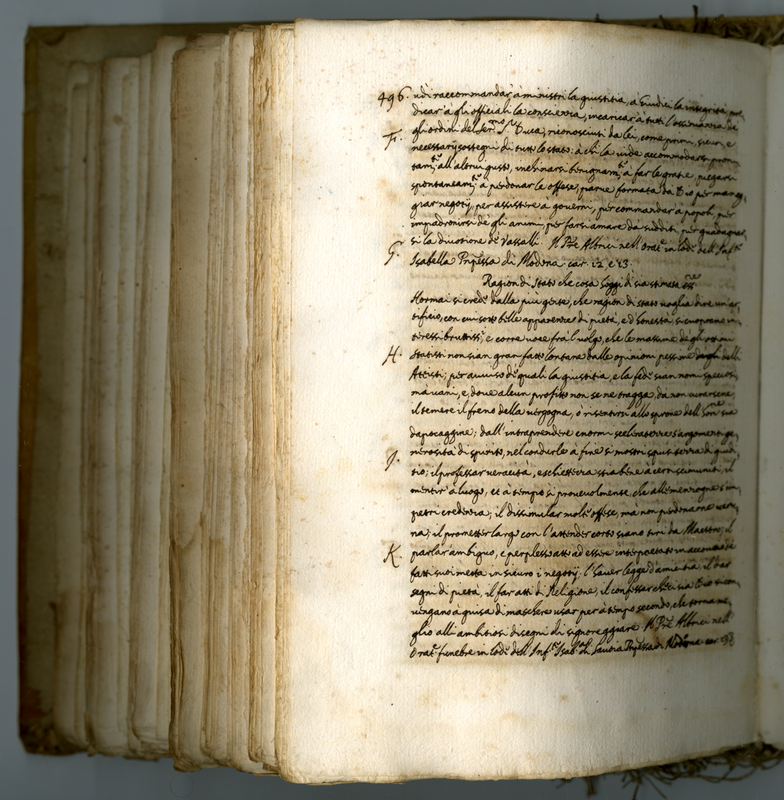 496. udi raccommandar' a ministri la giustitia, a Giudici la integrità,
dicar à gli officiali la conscienza, incaricar à tutti l'osseruanza de
F. gli ordini del Ser.mo S.r Duca, riconosciuti da lei, come primi, sicuri, e
necessarij sostegni di tutto lo stato: à chi la uide accommodarsi
all'altrui gusto, inchinarsi benignam.te à far le gratie, piegarsi
spontaneam.te à perdonar le offese, parue formata da Dio per maneg
giar negotij, per assistere à gouerni, per commandar à popoli, per
impadronirsi de gli animi, per farsi amare da sudditi, per guadagnar
G. si la diuotione de Vassalli. Il P're Albrici nell'Orat.e in lode dell'Inf.te
Isabella Prñpessa di Modona. car. 12. e 13.
Ragion di stato che cosa hoggi dì sia stimata
Hormai si crede dalla più gente, che ragion di stato uoglia dire un'ar
tificio, con cui sotto belle apparenze di pietà, e d'honestà si cuoprano in
teressi bruttiss.i, e corre uoce frà'l uolgo, che le massime degli ottimi
H. statisti non sian gran fatto lontane dalle opinioni pessime degli
Atteisti; per auuiso de quali la giustitia, e la fede sian nomi speciosi,
mà uani, e doue alcun profitto non se ne tragga, da non curarsene,
il temere il freno della uergogna, ò risentirsi allo sprone dell'hon.re sia
dapocaggine; dall'intraprendere enormi sceleratezze s'argomenti ge
nerosità di spirito, nel condurle à fine si mostri
I. tio; il professar ueracità, e schiettezza stia bene à certi scimuniti, il
mentir' à luogo, et à tempo si prouuolmente, che alle menzogne s'im
petri credenza; il dissimular molte offese, mà non perdonarne ueru
na; il prometter largo con l'attender corto siano tiri da Maestro; il
K. parlar ambiguo, e perplesso atto ad essere interpretato in accomodo de
fatti suoi metta in sicuro i negotij. l'hauer legge d'amicitia, il dar
segni di pietà, il far atti di Religione, il confessar che ci sia Dio si con
uengano à guisa di maschere usar per à tempo secondo, che torna me
glio alli ambitiosi disegni di signoreggiare. Il P're Albrici nell'
Orat.e funebre in lode dell'Inf.te Isab.a di Sauoia Prñpessa di Modona car.